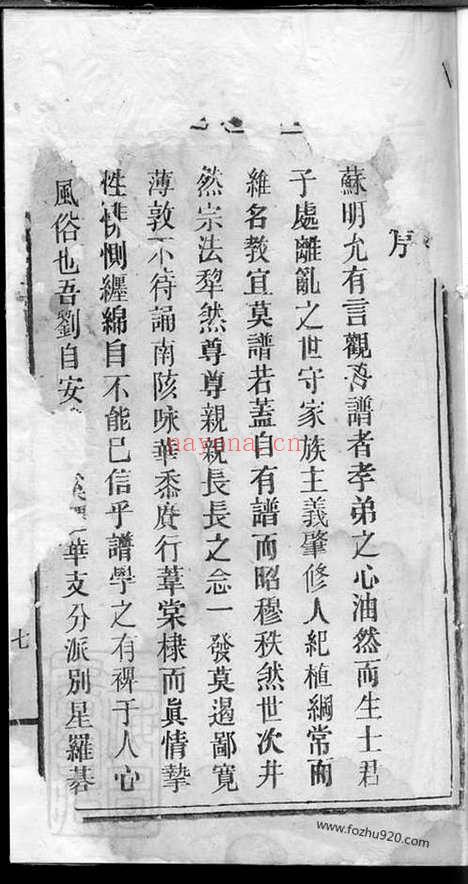 序
蘇明允有言觀吾譜者孝弟之心油然而生士君
子處離亂之世守家族主義肇修人紀植綱常而
維名教宜莫譜若蓋自有譜而昭穆秩然世次井
然宗法犂然尊尊親親長長之念一發莫遏鄙寬
薄敦不待誦南陔咏華黍賡行葦棠棣而眞情摯
性悱惻纏綿自不能已信乎譜學之有裨于人心
風俗也吾劉自安
華支分派別星羅碁
七
nayona.cn
www.fozhu920.com